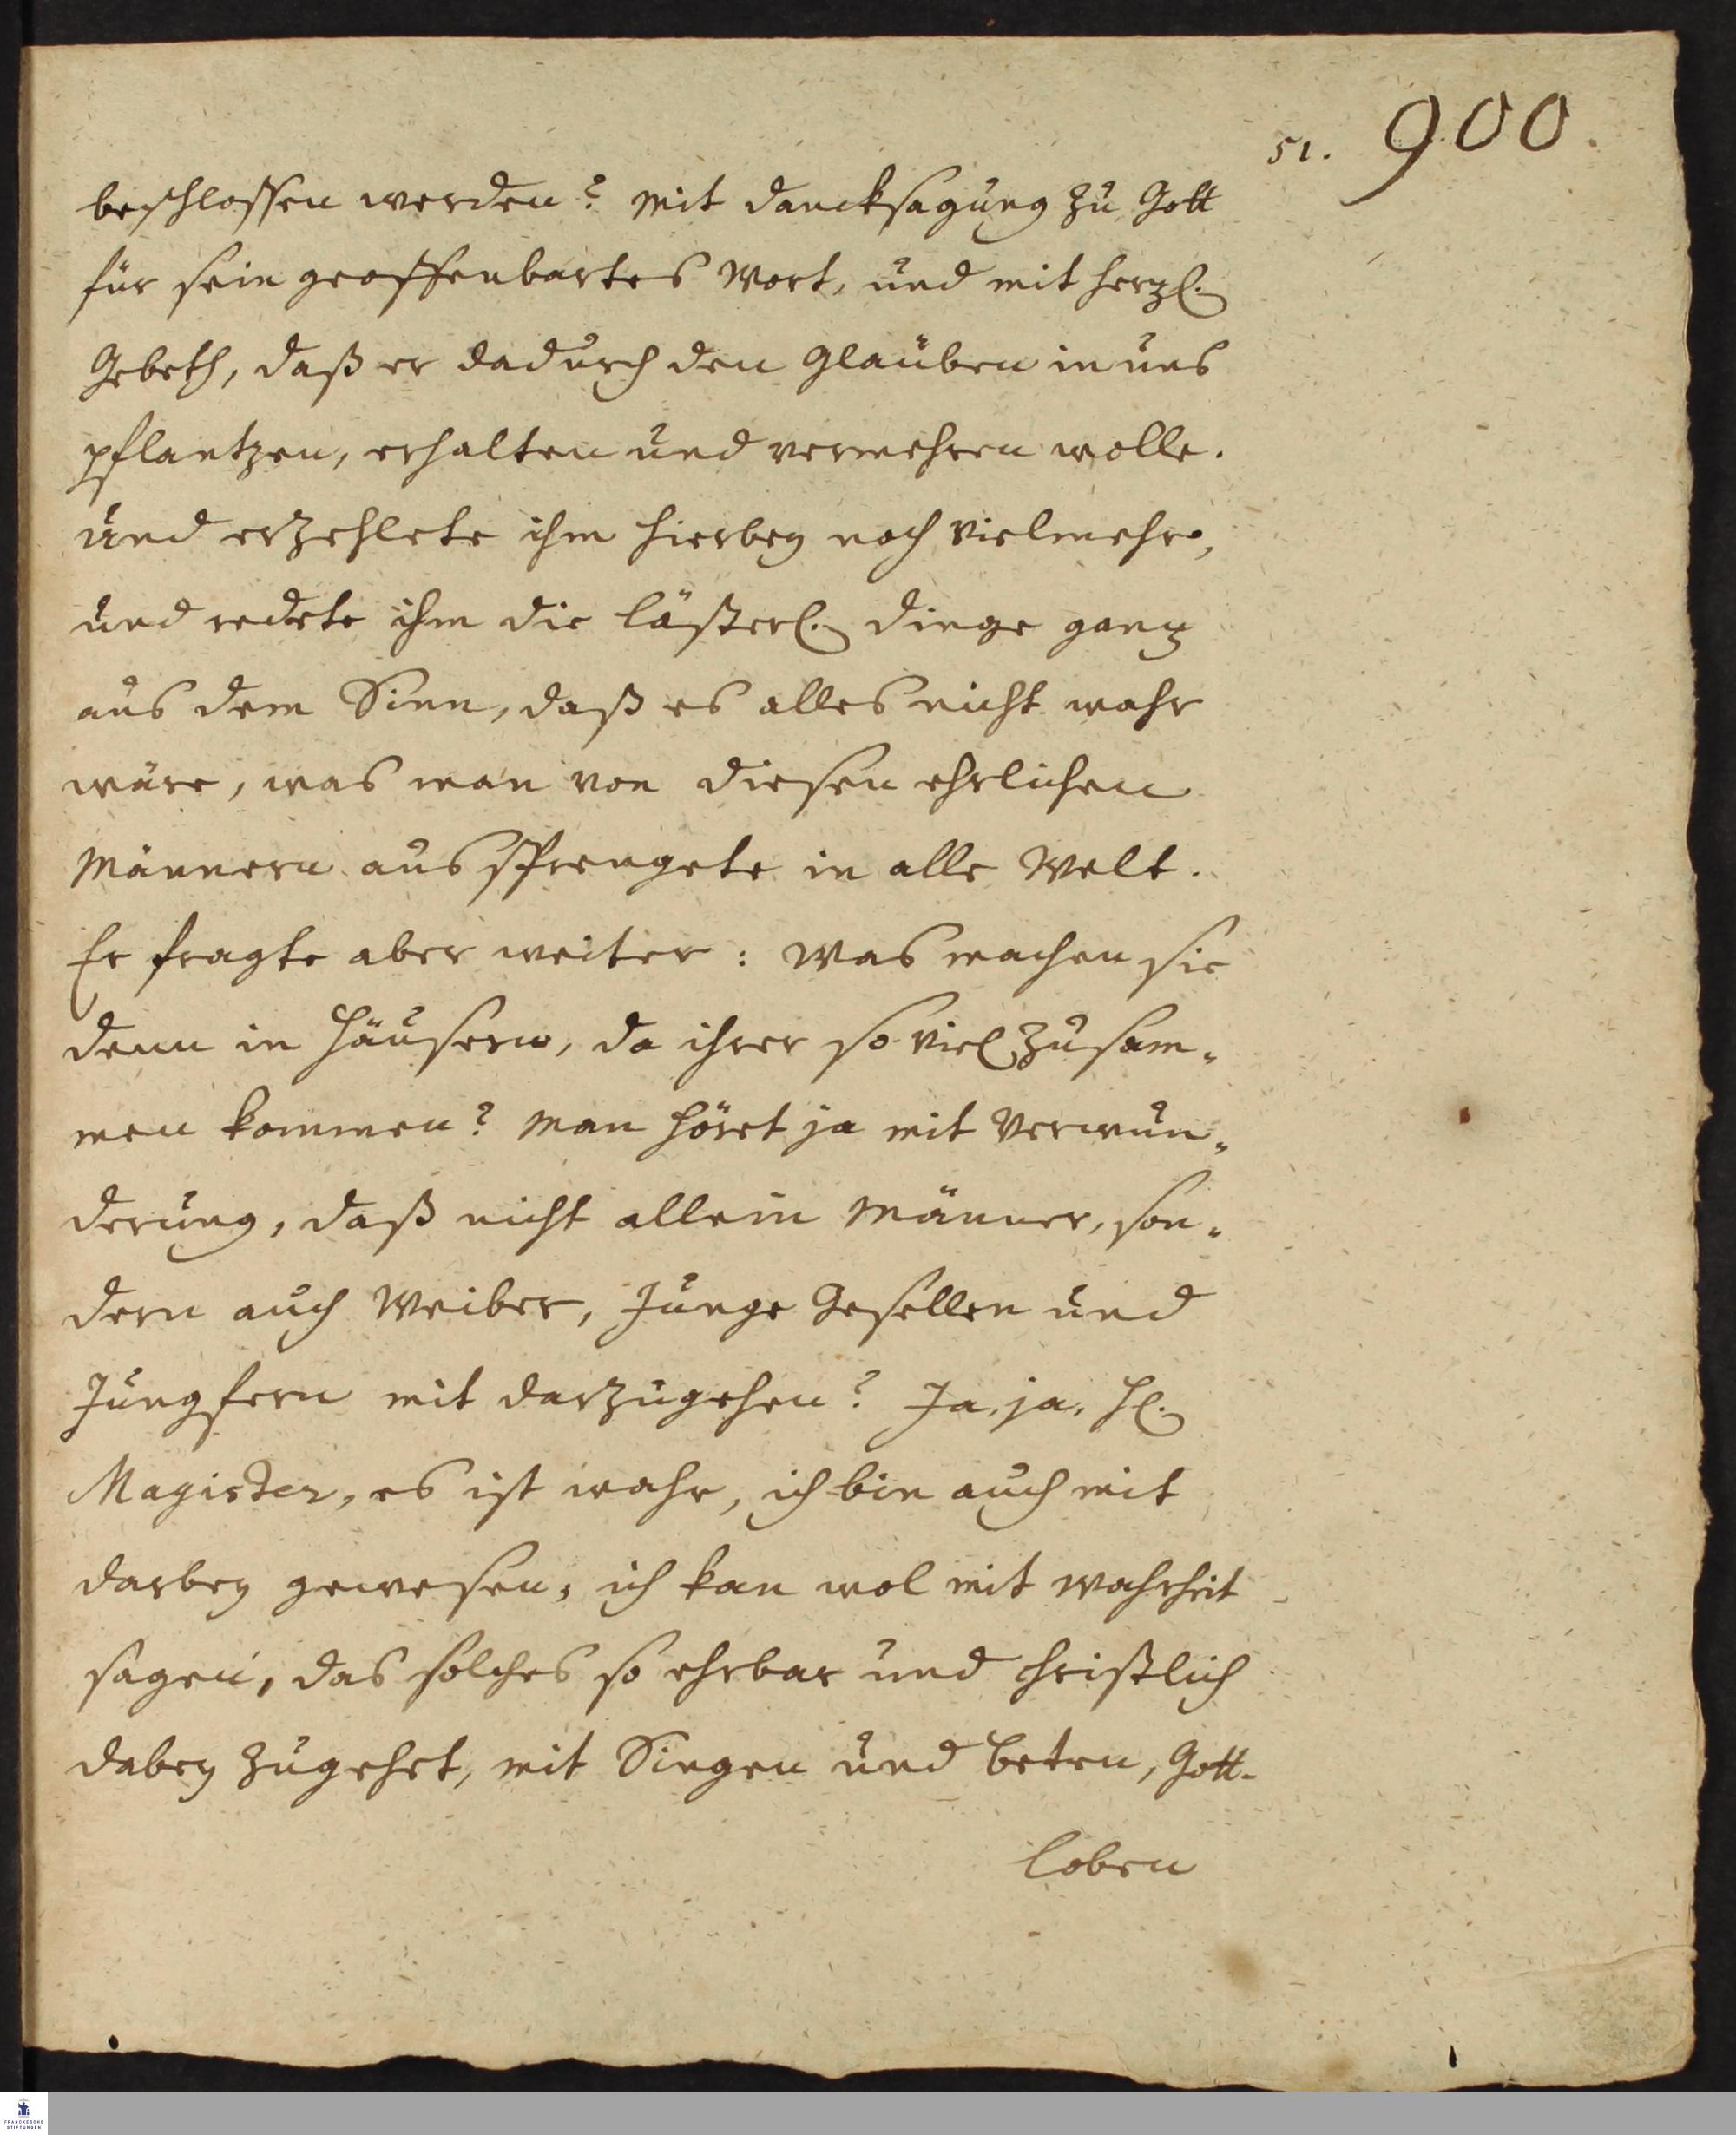 51. 900.
beschlossen werden? Mit dancksagung zu Gott
für sein geoffenbartes Wort, und mit hertzl.
Gebeth, daß er dadurch den Glauben in uns
pflantzen, erhalten und vermehren wolle.
und erzehlete ihm hierbey noch vielmehr,
und redete ihm die lästerl. dinge gantz
aus dem Sinn, daß es alles nicht wahr
wäre, was man von diesen ehrlichen
Männern aussprengete in alle Welt.
Er fragte aber weiter: Was machen sie
denn in Häusern, da ihrer so viel zusam-
men kommen? Man höret ja mit Verwun-
derung, daß nicht allein Männer, son-
dern auch Weiber, Junge Gesellen und
Jungfern mit darzugehen? Ja, ja, H.
Magister, es ist wahr, ich bin auch mit
darbey gewesen, ich kan wol mit Wahrheit
sagen, das solches so ehrbar und christlich
dabey zugehet, mit Singen und beten, Gott-
loben
FRANCKESCHE
STIFTUNGEN